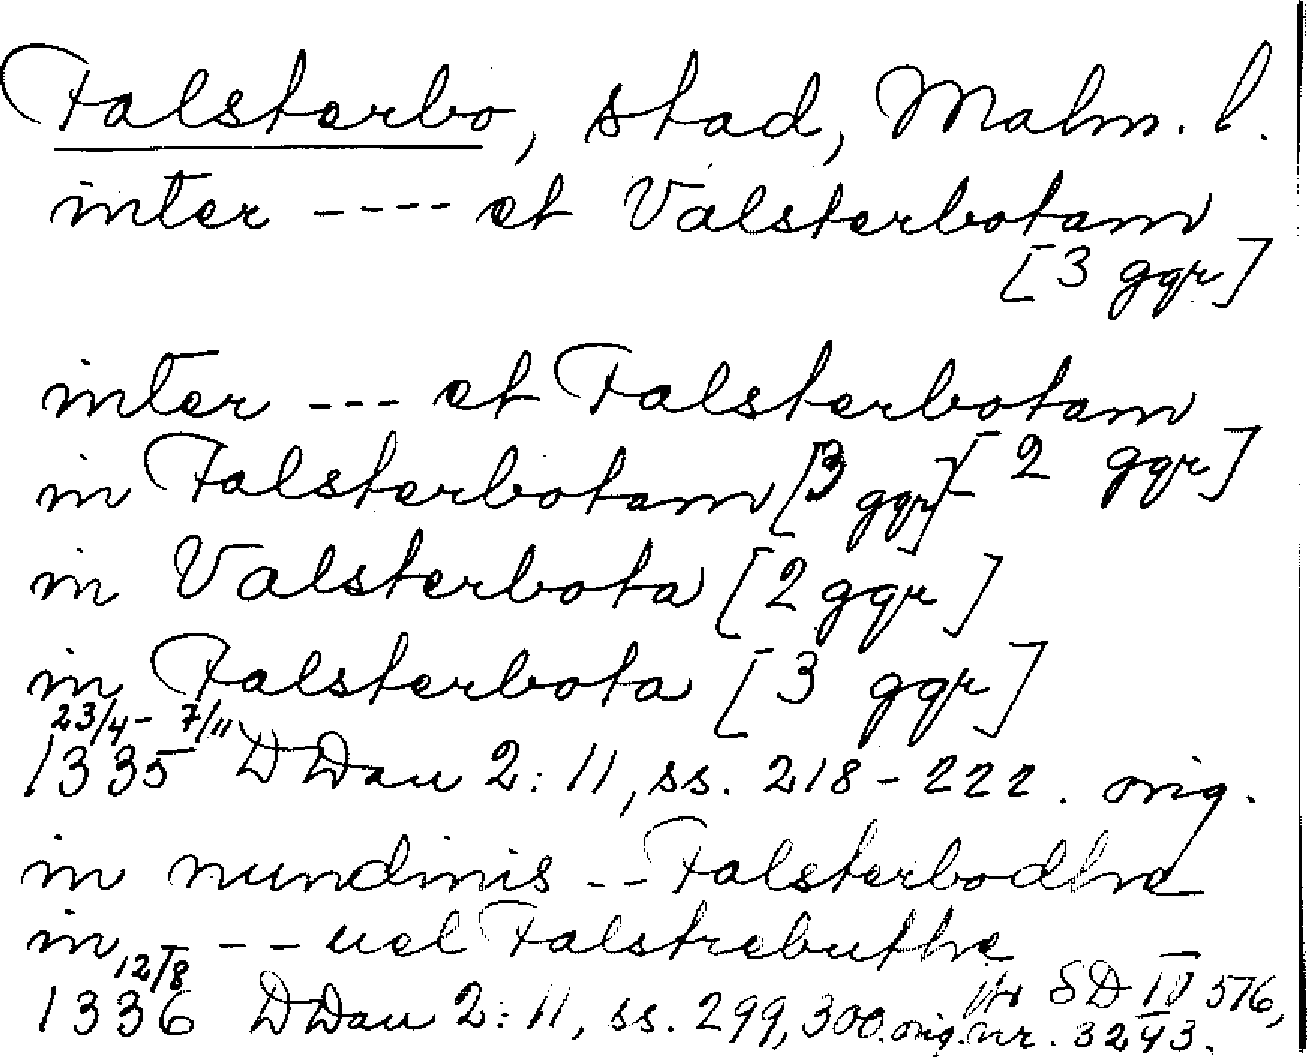 Falsterbo, stad, Malm. l.
inter ---- et Valsterbotam
[3 ggr]
inter --- et Falsterbotam
[2 ggr]
in Falsterbotam [3 ggr]
in Valsterbota [2 ggr]
in Falsterbota [3 ggr]
23/4 - 7/11
1335 DDan 2:11, ss. 218-222. orig.
in nundinis -- Falsterbodhe
in --- uel Falstrebuthe
12/8
1336 DDan 2:11, ss. 299, 300. orig. jfr SD IV 576,
nr. 3243.